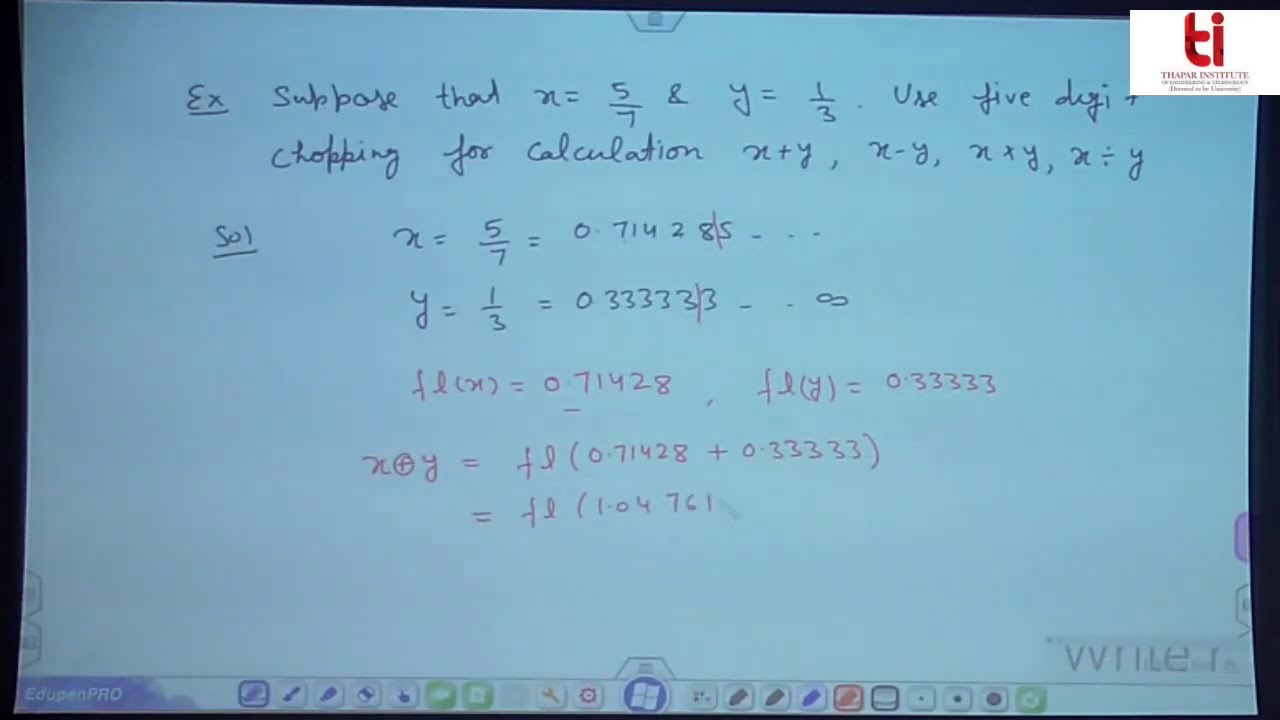 ti
THAPAR INSTITUTE
OF ENGINEERING & TECHNOLOGY
(Deemed to be University)
Ex Suppose that x = 5/7 & y = 1/3. Use five digit
chopping for calculation x+y, x-y, x×y, x÷y
Sol x = 5/7 = 0.71428|5 - - -
y = 1/3 = 0.33333|3 - - - ∞
fl(x) = 0.71428, fl(y) = 0.33333
x⊕y = fl(0.71428 + 0.33333)
= fl(1.04761
EdupenPRO